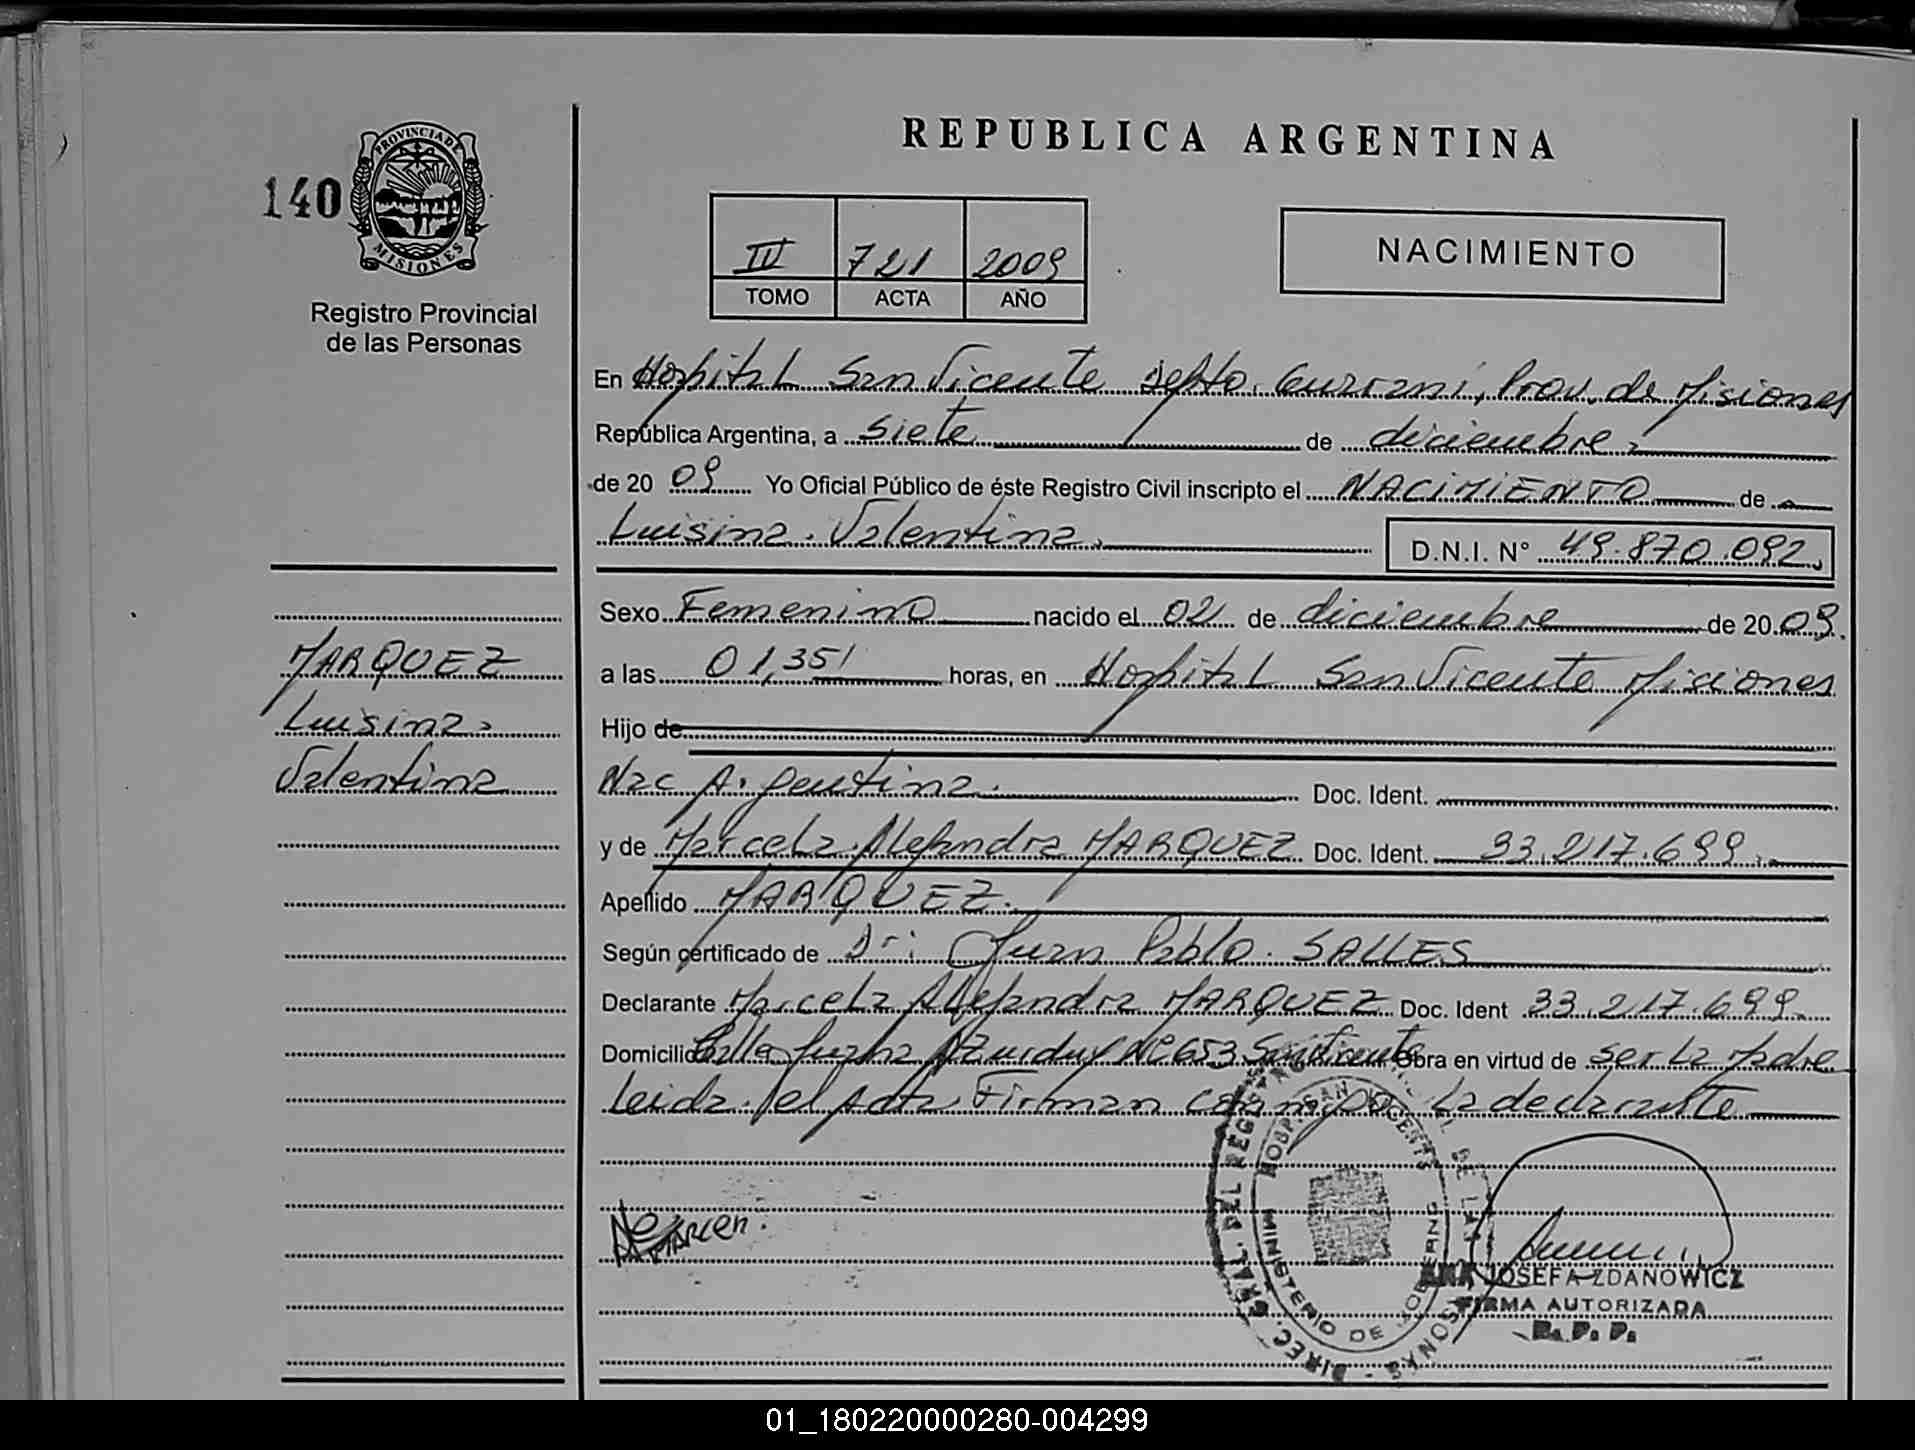 REPUBLICA ARGENTINA
140
PROVINCIA DE
MISIONES
Registro Provincial
de las Personas
III 721 2009
TOMO ACTA AÑO
NACIMIENTO
En Hospital San Vicente Depto. Guarani, Prov. de Misiones
República Argentina, a Siete de diciembre
de 20 09 Yo Oficial Público de éste Registro Civil inscripto el NACIMIENTO de
Luisina Valentina
D.N.I. N° 49.870.092
Sexo Femenino nacido el 02 de diciembre de 20 09.
a las 01,35 horas, en Hospital San Vicente Misiones
Hijo de
Nac Argentina. Doc. Ident.
y de Marcela Alejandra MARQUEZ Doc. Ident. 33.217.699.
Apellido MARQUEZ.
Según certificado de Dr: Juan Pablo SALLES
Declarante Marcela Alejandra MARQUEZ Doc. Ident 33.217.699.
Domicilio Calle Juana Azurduy Nº 653 San Vicente Obra en virtud de ser La Madre
Leida el Acta Firman conmigo La declarante
MARQUEZ
Luisina
Valentina
DIREC. GRAL. DEL REGISTRO
HOSP. SAN VICENTE
MINISTERIO DE GOBIERNO
ANA JOSEFA ZDANOWICZ
FIRMA AUTORIZADA
R. P. P.
01_180220000280-004299